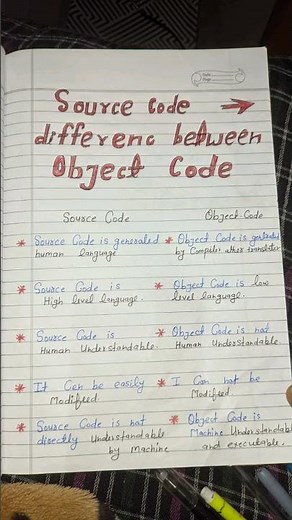 Source Code
differenc between
Object Code
Source Code
Object Code
* Source Code is generated
human language
* Object Code is
by Compiler other
* Source Code is
High level language.
* Object Code is low
level language.
* Source Code is
Human Understandable.
* Object Code is not
Human Understandable.
* It Can be easily
Modifyed.
* I Can not be
Modifyed
* Source Code is not
directly Understandable
by Machine
* Object Code is
Machine Understandabl
and executable.